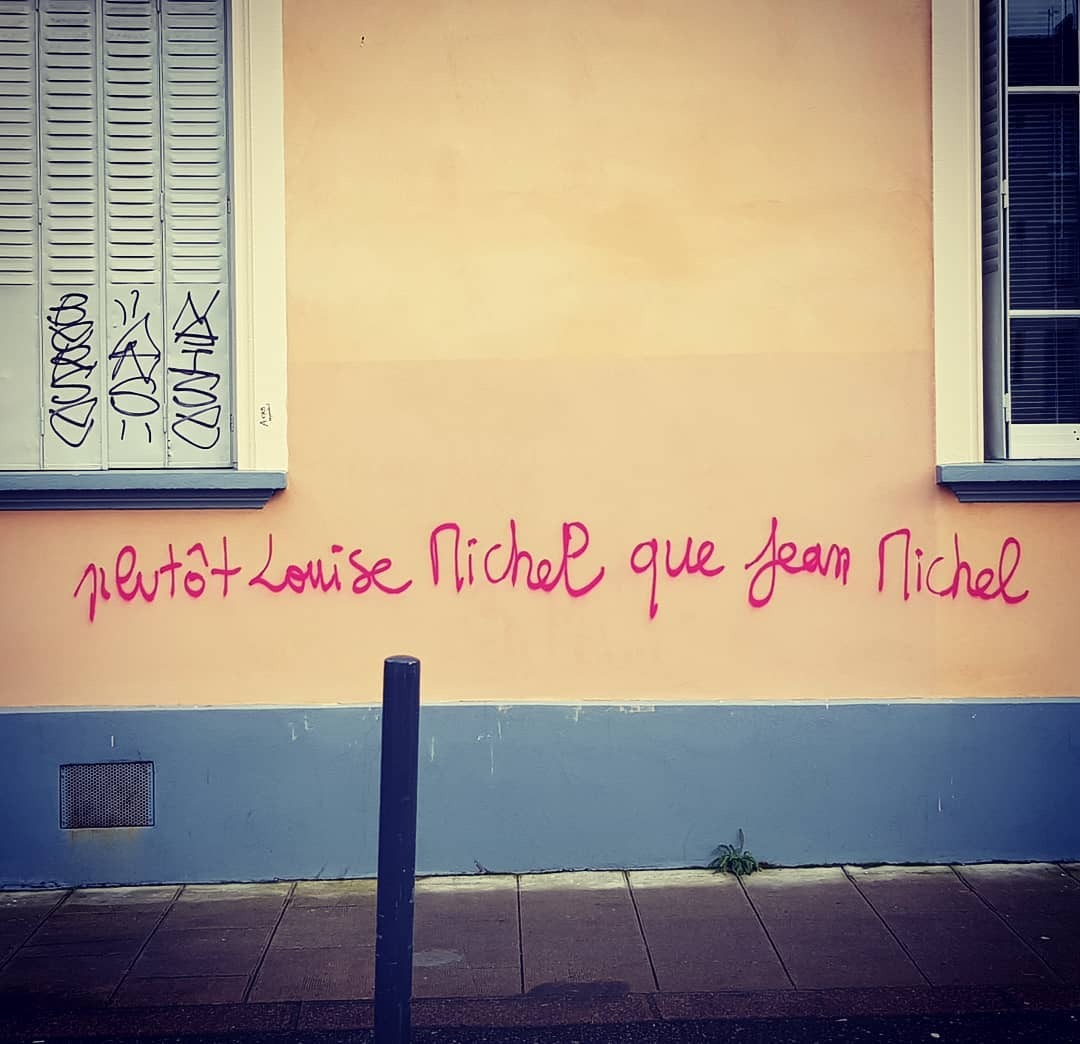 plutôt Louise Michel que Jean Michel